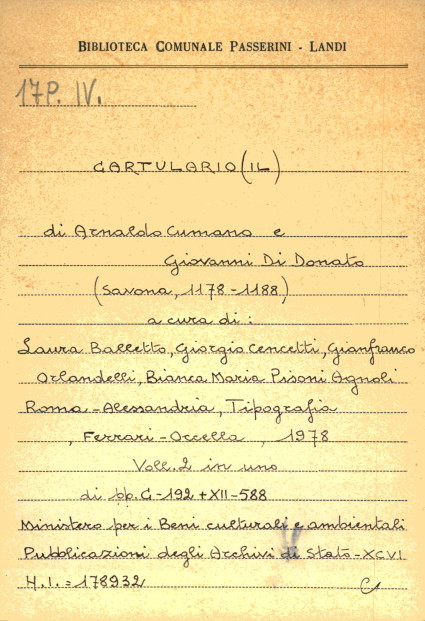 BIBLIOTECA COMUNALE PASSERINI - LANDI
17P. IV.
CARTULARIO (IL)
di Arnaldo Cumano e
Giovanni Di Donato
(Savona, 1178-1188)
a cura di:
Laura Balletto, Giorgio Cencetti, Gianfranco
Orlandelli, Bianca Maria Pisoni Agnoli
Roma-Alessandria, Tipografia
, Ferrari-Occella, 1978
Voll. 2 in uno
di pp. C-192 + XII-588
Ministero per i Beni culturali e ambientali
Pubblicazioni degli Archivi di Stato-XCVI
H.I. = 178932